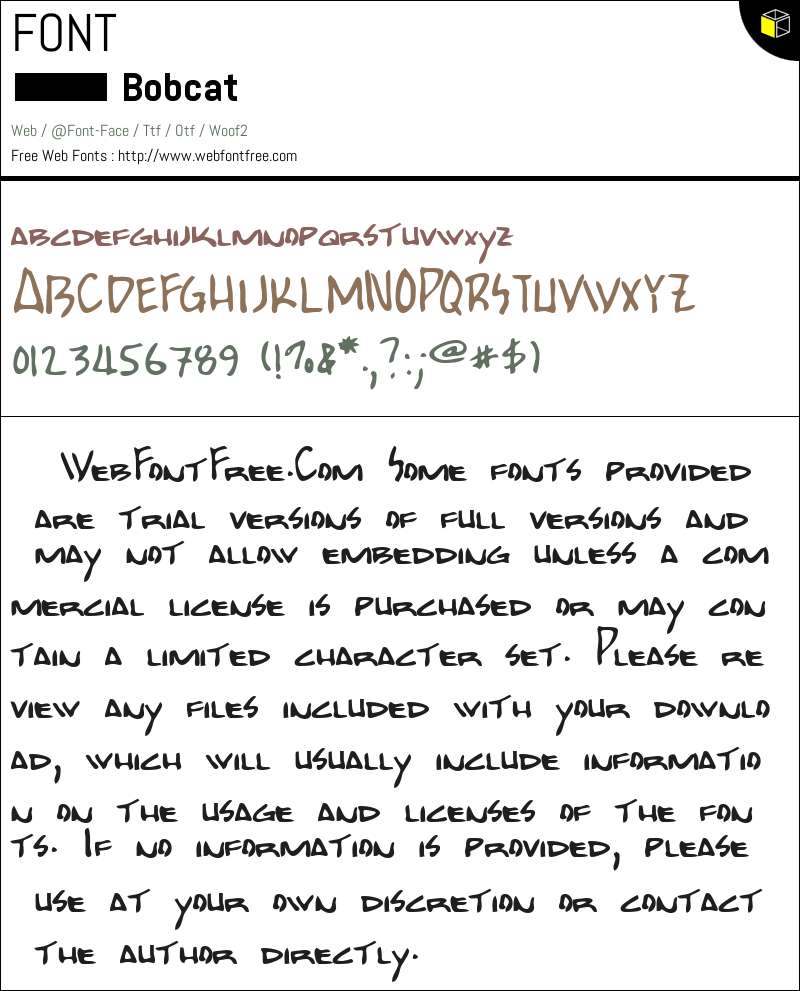 FONT
Bobcat
Web / @Font-Face / Ttf / Otf / Woof2
Free Web Fonts : http://www.webfontfree.com
abcdefghijklmnopqrstuvwxyz
ABCDEFGHIJKLMNOPQRSTUVWXYZ
0123456789 (!%&*.,?:;@#$)
WebFontFree.Com Some fonts provided
are trial versions of full versions and
may not allow embedding unless a com
mercial license is purchased or may con
tain a limited character set. Please re
view any files included with your downlo
ad, which will usually include informatio
n on the usage and licenses of the fon
ts. If no information is provided, please
use at your own discretion or contact
the author directly.